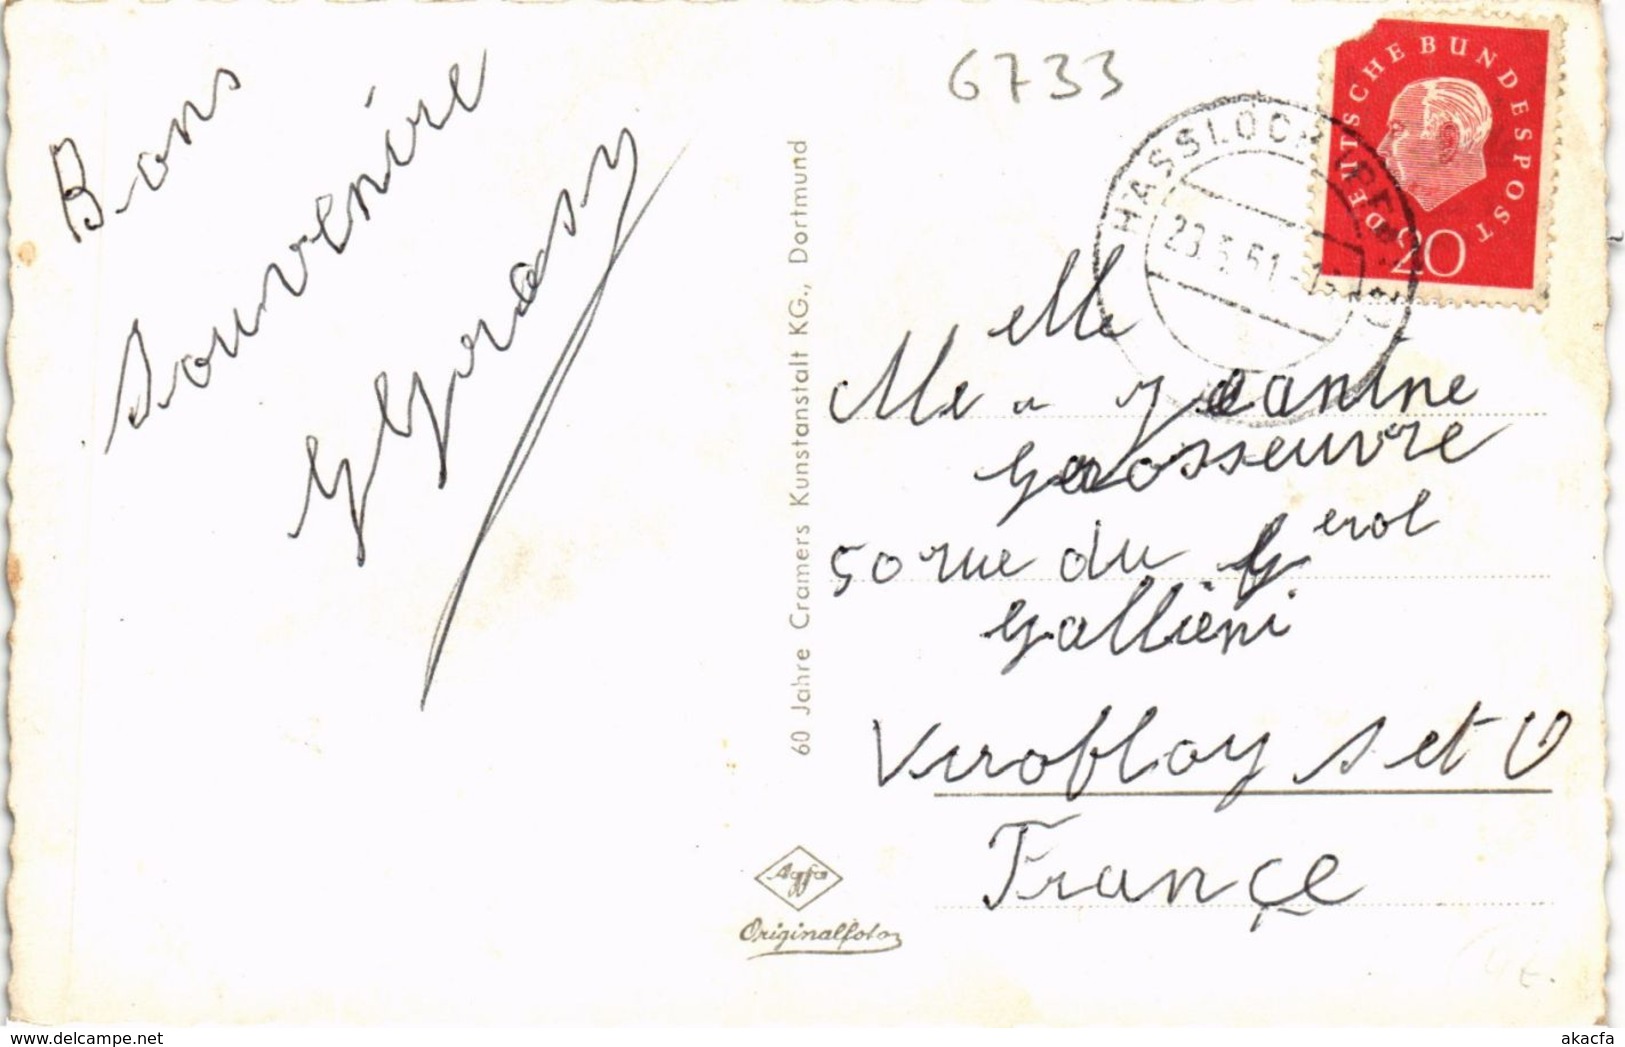 Bons
Souvenire
6733
DEUTSCHE BUNDESPOST
20
HASSLOCH (PFALZ)
23.5.61
Melle
Mle - Jeanine
Grosseuvre
50 rue du Gerol
Galliéni
Viroflay S et O
Françe
60 Jahre Cramers Kunstanstalt KG., Dortmund
Agfa
Originalfoto
4 €.
www.delcampe.net
akacfa